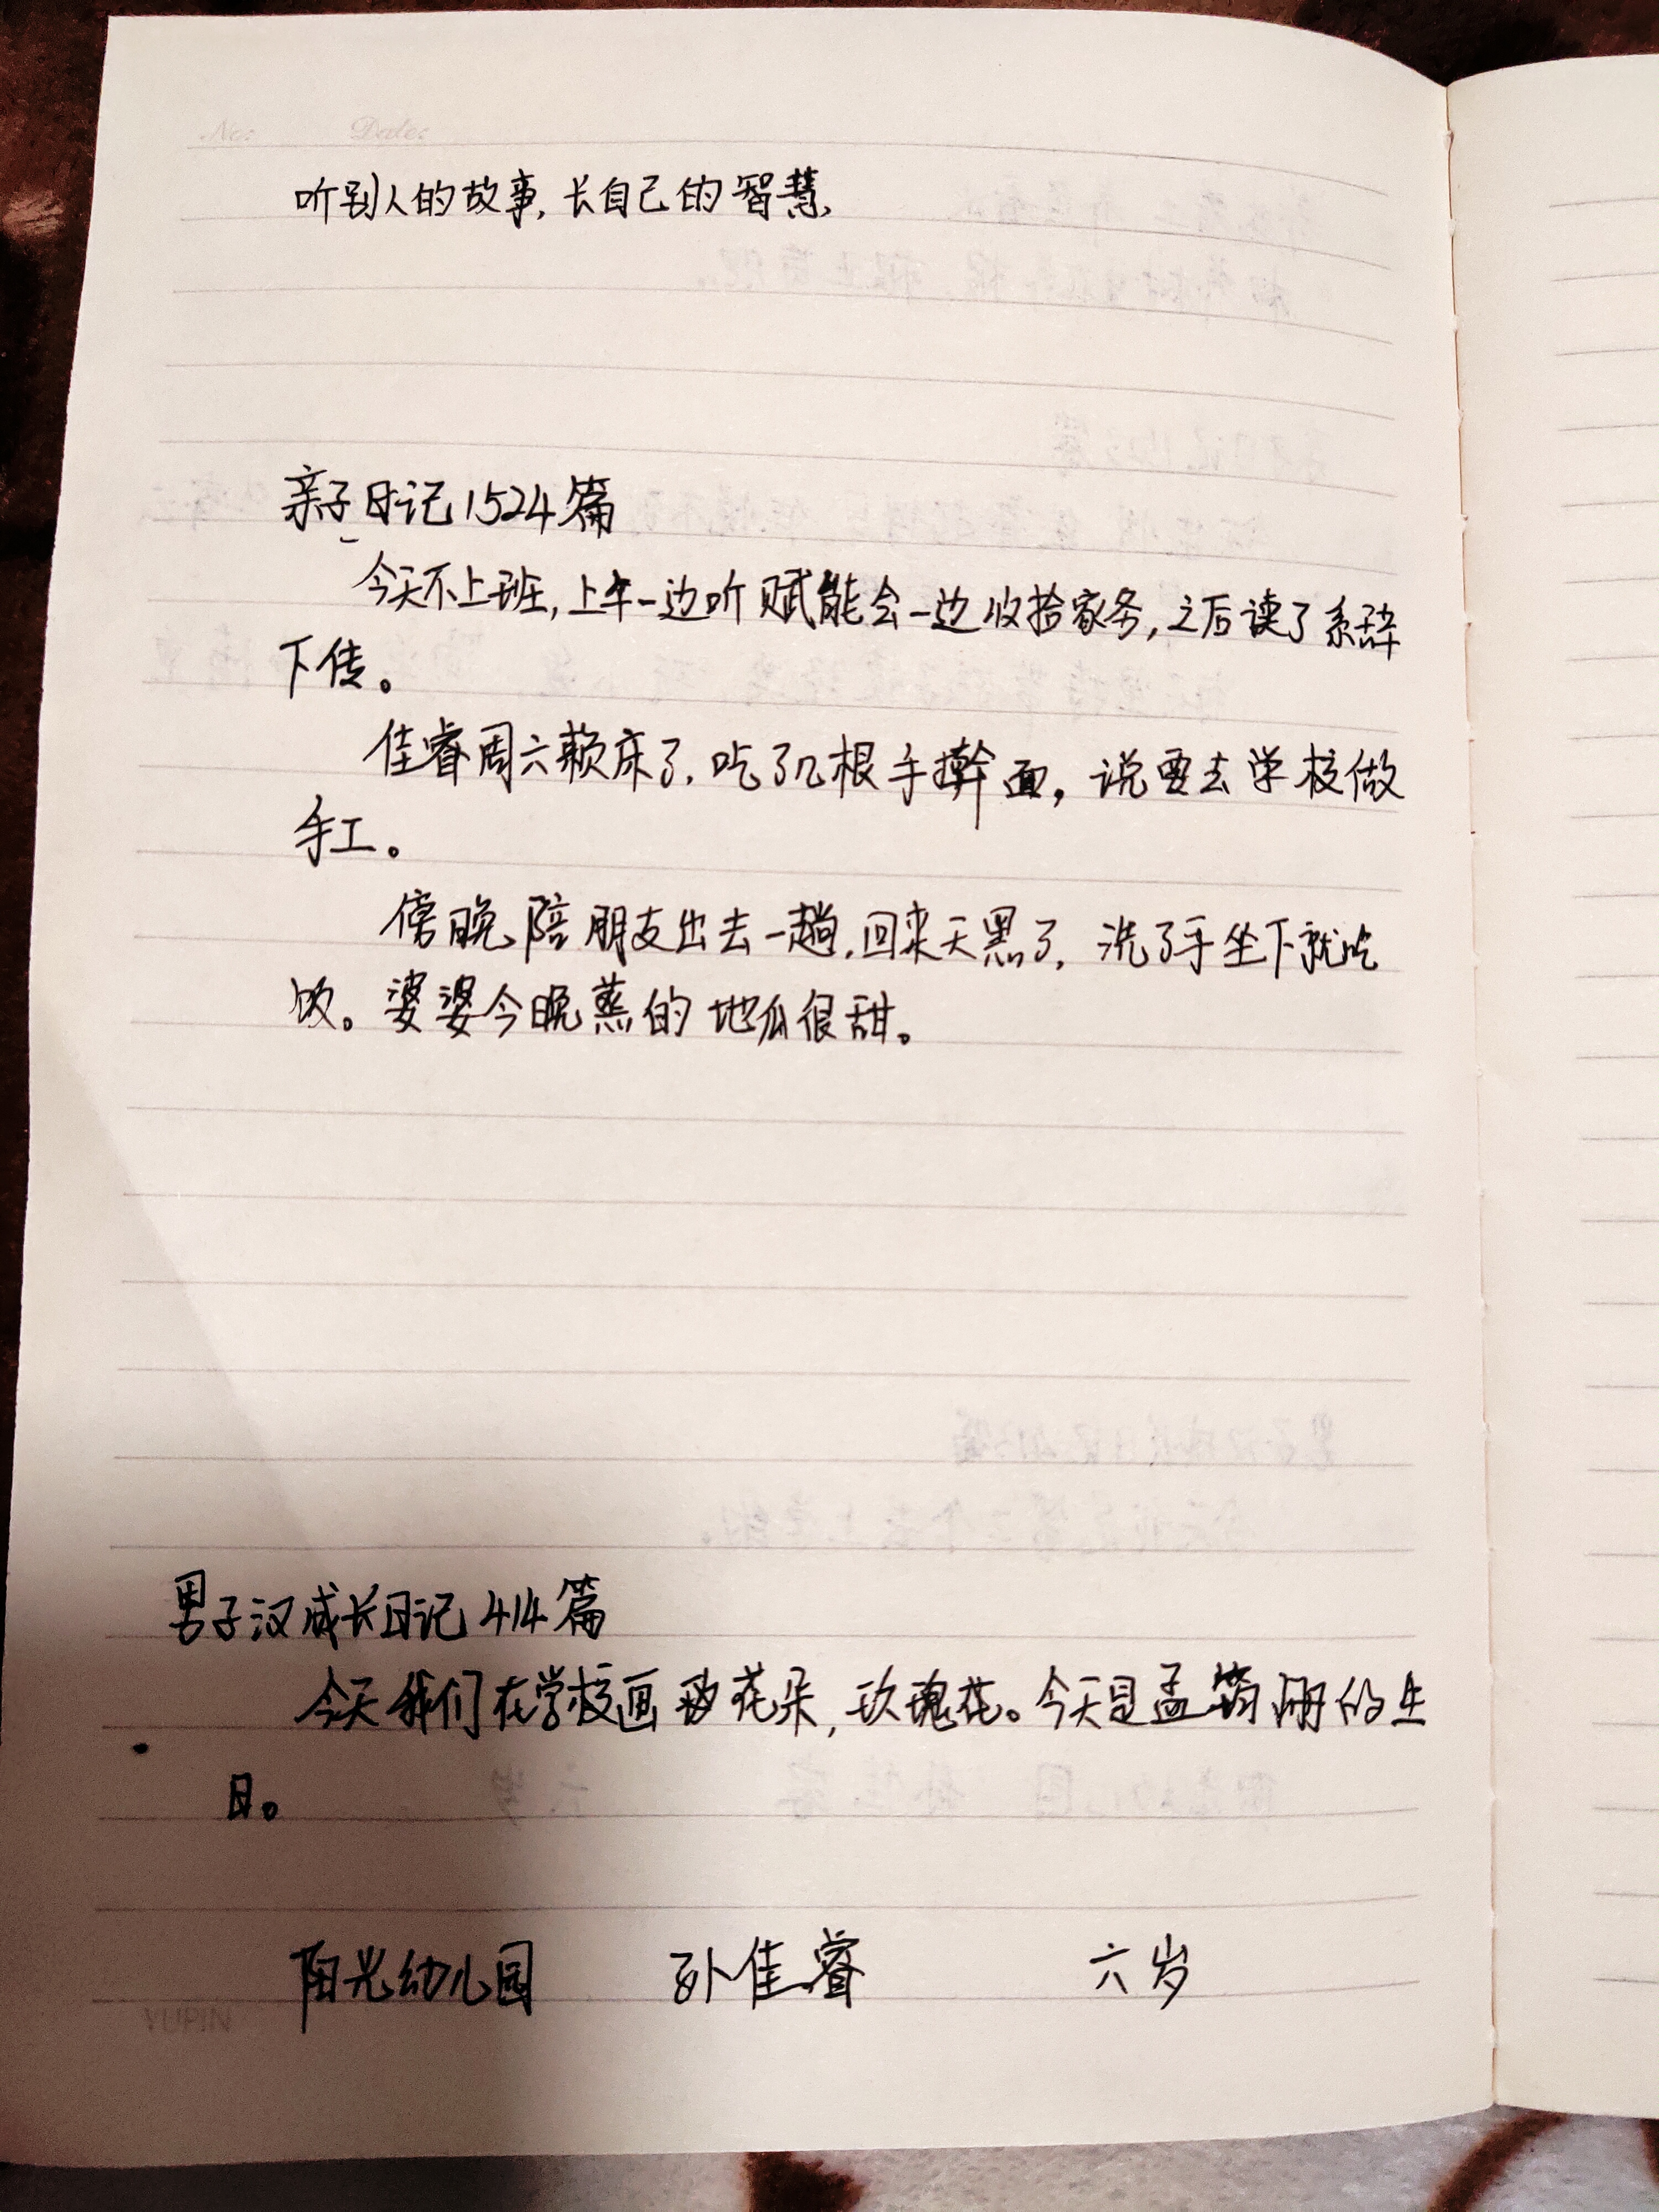 No: Date:
听别人的故事,长自己的智慧,
亲子日记1524篇
今天不上班,上午一边听赋能会一边收拾家务,之后读了系辞
下传。
佳睿周六赖床了,吃了几根手擀面,说要去学校做
手工。
傍晚陪朋友出去一趟,回来天黑了,洗了手坐下就吃
饭。婆婆今晚蒸的地瓜很甜。
男子汉成长日记414篇
今天我们在学校画花朵,玫瑰花。今天是孟的生
日。
阳光幼儿园 孙佳睿 六岁
YUPIN